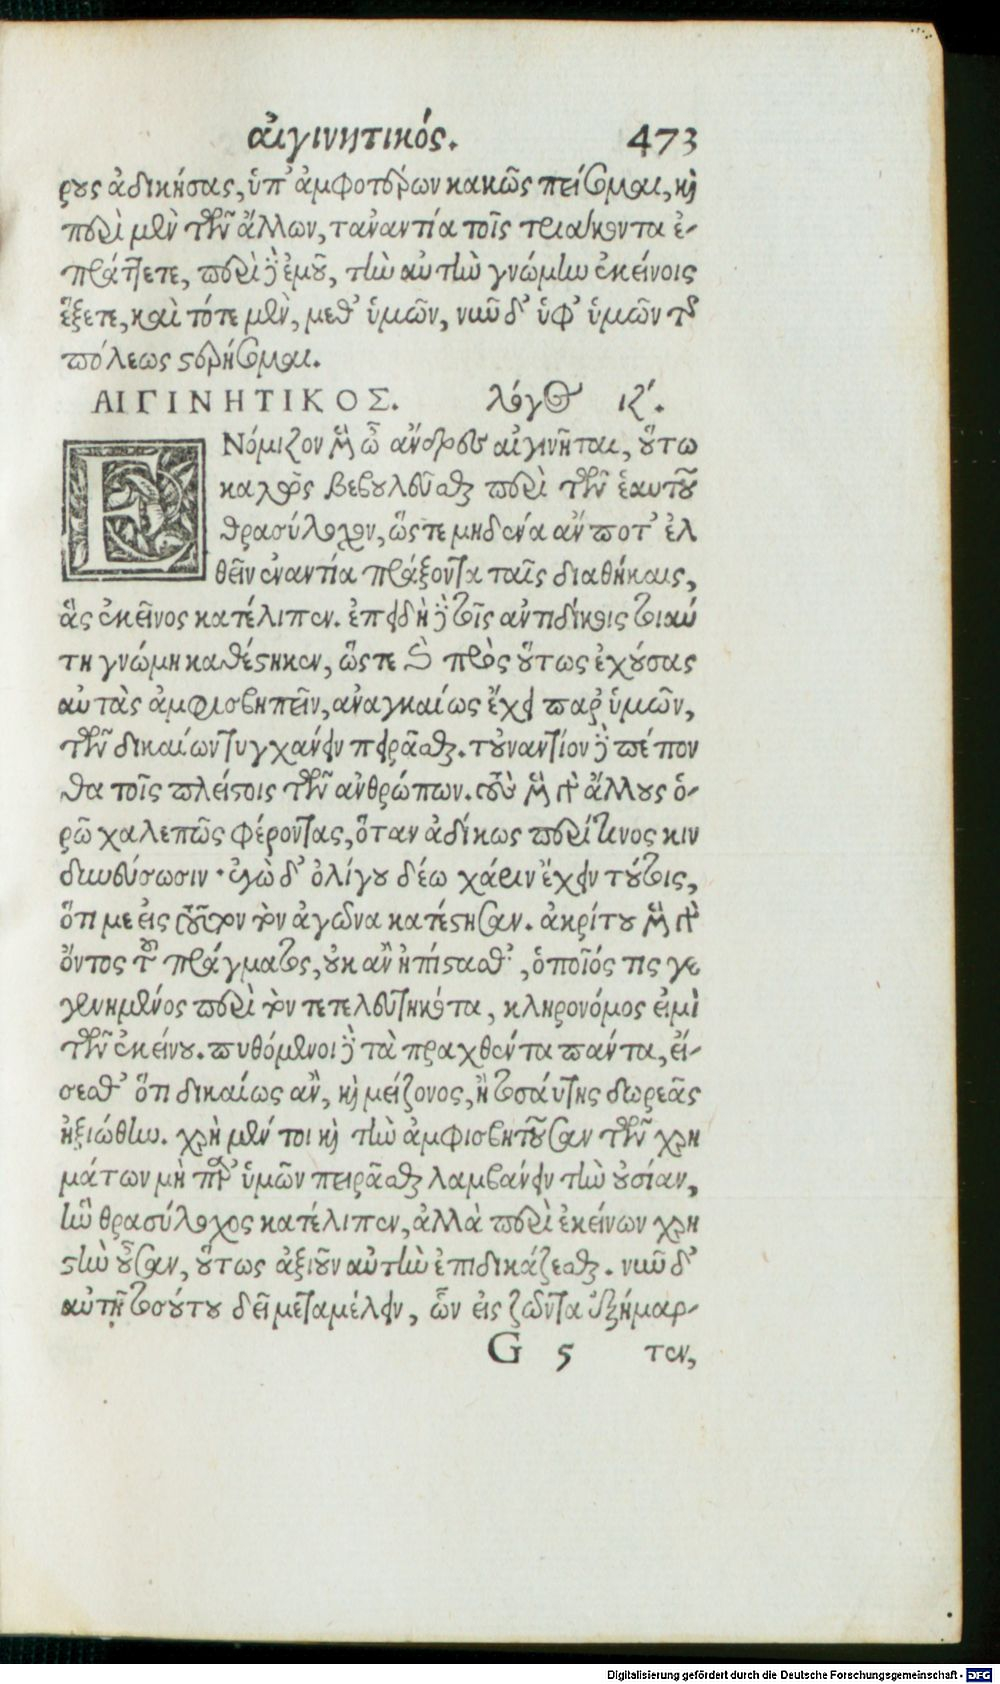 αἰγινητικός. 473
ρους ἀδικήσας, ὑπ' ἀμφοτέρων κακῶς πείσομαι, καὶ
περὶ μὲν τῶν ἄλλων, τἀναντία τοῖς τριάκοντα ἐ-
πράττετε, περὶ δὲ ἐμοῦ, τὴν αὐτὴν γνώμην ἐκείνοις
ἕξετε, καὶ τότε μὲν, μεθ' ὑμῶν, νῦν δ' ὑφ' ὑμῶν τῆς
πόλεως στερήσομαι.
ΑΙΓΙΝΗΤΙΚΟΣ. λόγος ιζ'.
ΕΝόμιζον μὲν ὦ ἄνδρες αἰγινῆται, οὕτω
καλῶς βεβουλεῦσθαι περὶ τῶν ἑαυτοῦ
θρασύλοχον, ὥστε μηδένα ἄν ποτ' ἐλ
θεῖν ἐναντία πράξοντα ταῖς διαθήκαις,
ἃς ἐκεῖνος κατέλιπεν. ἐπειδὴ δὲ τοῖς ἀντιδίκοις τοιαύ
τη γνώμη καθέστηκεν, ὥστε καὶ πρὸς οὕτως ἐχούσας
αὐτὰς ἀμφισβητεῖν, ἀναγκαίως ἔχει παρ' ὑμῶν,
τῶν δικαίων τυγχάνειν πειρᾶσθαι. τοὐναντίον δὲ πέπον
θα τοῖς πλείστοις τῶν ἀνθρώπων. τοὺς μὲν γὰρ ἄλλους ὁ-
ρῶ χαλεπῶς φέροντας, ὅταν ἀδίκως περί τινος κιν
δυνεύσωσιν· ἐγὼ δ' ὀλίγου δέω χάριν ἔχειν τούτοις,
ὅτι με εἰς τοῦτον τὸν ἀγῶνα κατέστησαν. ἀκρίτου μὲν γὰρ
ὄντος τοῦ πράγματος, οὐκ ἂν ἠπίστασθ', ὁποῖός τις γε
γενημένος περὶ τὸν τετελευτηκότα, κληρονόμος εἰμὶ
τῶν ἐκείνου. πυθόμενοι δὲ τὰ πραχθέντα πάντα, εἴ-
σεσθ' ὅτι δικαίως ἂν, καὶ μείζονος, ἢ τοσαύτης δωρεᾶς
ἠξιώθην. χρὴ μέν τοι καὶ τὴν ἀμφισβητοῦσαν τῶν χρη
μάτων μὴ παρ' ὑμῶν πειρᾶσθαι λαμβάνειν τὴν οὐσίαν,
ἣν θρασύλοχος κατέλιπεν, ἀλλὰ περὶ ἐκείνων χρη
στὴν οὖσαν, οὕτως ἀξιοῦν αὐτὴν ἐπιδικάζεσθαι. νῦν δ'
αὐτῇ τοσούτου δεῖ μεταμέλειν, ὧν εἰς ζῶντα ἐξήμαρ-
G 5 τεν,
Digitalisierung gefördert durch die Deutsche Forschungsgemeinschaft - DFG